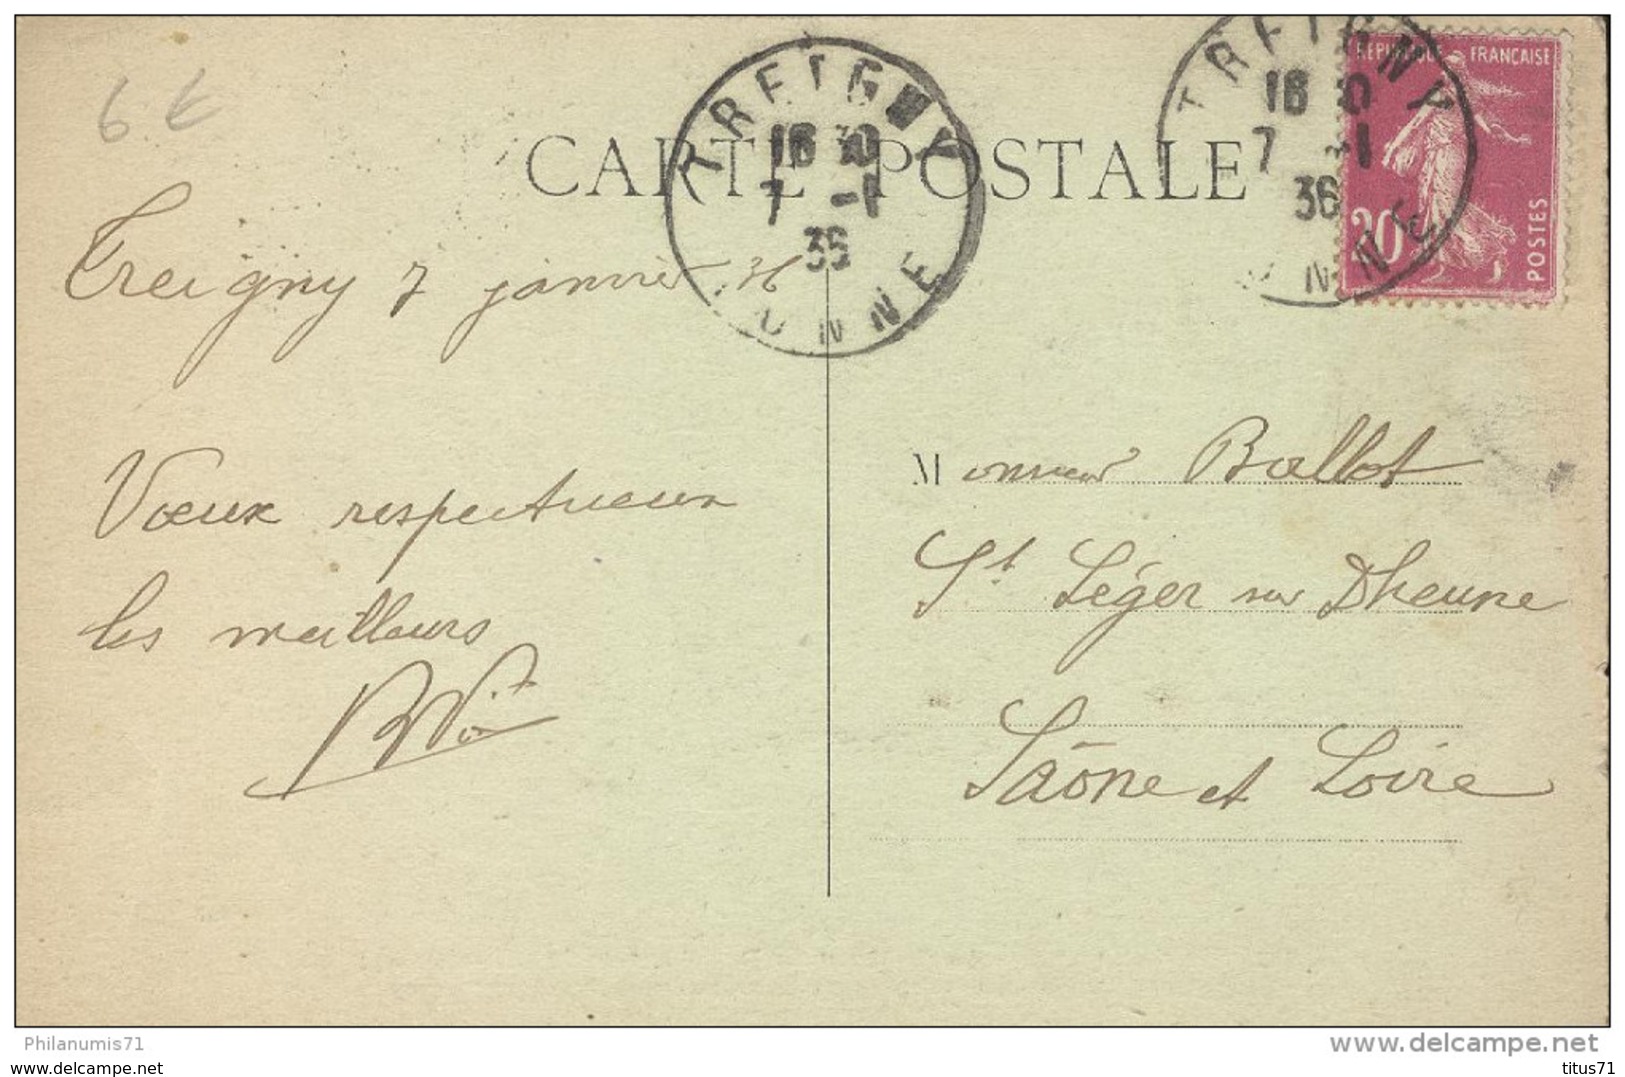 6 €
CARTE POSTALE
TREIGNY
16 30
7 -1
36
YONNE
TREIGNY
16 30
7 -1
36
YONNE
REPUBLIQUE FRANÇAISE
20
POSTES
Treigny 7 janvier 36
Vœux respectueux
les meilleurs
Monsieur Ballot
St Léger sur Dheune
Saône et Loire
Philanumis71
www.delcampe.net
titus71